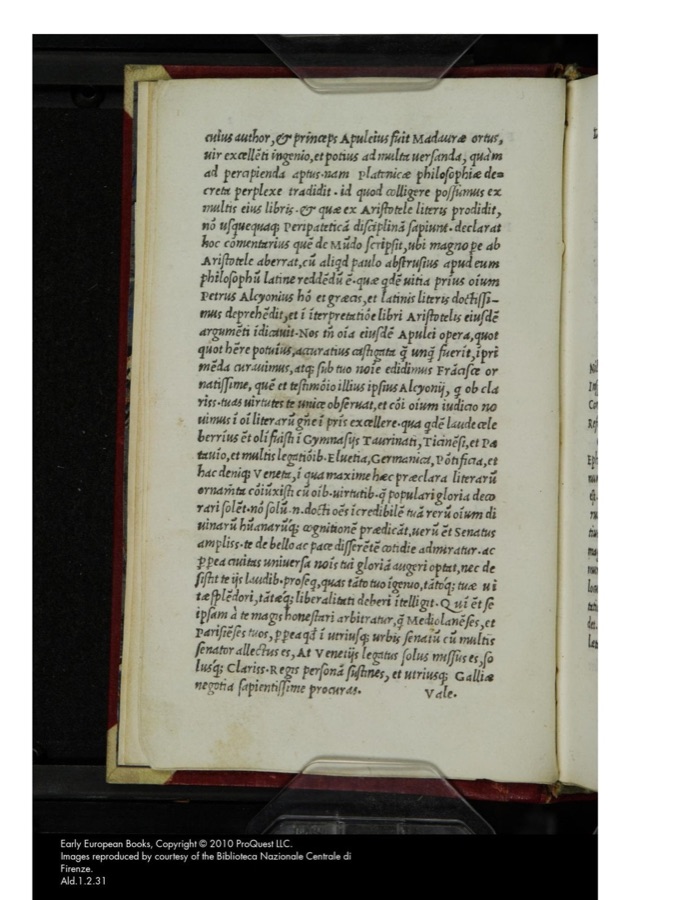 cuius author, & princeps Apuleius fuit Madauræ ortus,
uir excellẽti ingenio, et potius ad multa uersanda, quàm
ad percipienda aptus. nam platonicæ philosophiæ de=
creta perplexe tradidit. id quod colligere possumus ex
multis eius libris. & quæ ex Aristotele literis prodidit,
nõ usquequaq; Peripateticã disciplinã sapiunt. declarat
hoc cõmentarius quẽ de Mũdo scripsit, ubi magno pe ab
Aristotele aberrat, cũ aliqd paulo abstrusius apud eum
philosophũ latine reddẽdũ ẽ. quæ qdẽ uitia prius oĩum
Petrus Alcyonius hõ et græcis, et latinis literis doctissi-
mus deprehẽdit, et ĩ ĩterpretatiõe libri Aristotelis eiusdẽ
argumẽti ĩdicauit. Nos tñ oĩa eiusdẽ Apulei opera, quot
quot hẽre potuĩus, accuratius castigata q̃ unq̃ fuerit, ĩpri
mẽda curauimus, atq; sub tuo noĩe edidimus Frãcisce or
natissime, quẽ et testimõio illius ipsius Alcyonij, q ob cla
riss. tuas uirtutes te unice obseruat, et cõi oĩum iudicio no
uimus ĩ oĩ literarũ gñe ĩ pris excellere. qua qdẽ laude cele
berrius ẽt oli fuisti ĩ Gymnasijs Taurinati, Ticinẽsi, et Pa
tauio, et multis legatiõib. Eluetia, Germanica, Põtificia, et
hac deniq; Veneta, ĩ qua maxime hæc præclara literarũ
ornamẽta cõiũxisti cũ oĩb. uirtutib. q̃ populari gloria deco
rari solẽt. nõ solũ .n. docti oẽs ĩcredibilẽ tuã rerũ oĩum di
uinarũ hũanarũq; cognitionẽ prædicãt, uerũ ẽt Senatus
ampliss. te de bello ac pace disserẽtẽ cotidie admiratur. ac
ꝓpea ciuitas uniuersa noĩs tui gloriã augeri optat, nec de
sistit te ijs laudib. proseq, quas tãto tuo ĩgenio, tãtoq; tuæ ui
tæ splẽdori, tãtæq; liberalitati deberi ĩtelligit. Qui ẽt se
ipsam à te magis honestari arbitratur, q̃ Mediolanẽses, et
Parisiẽses tuos, ꝓpea qđ ĩ utriusq; urbis senatũ cũ multis
senator allectus es, At Venetijs legatus solus missus es, so
lusq; Clariss. Regis personã sustines, et utriusq; Galliæ
negotia sapientissime procuras. Vale.
Early European Books, Copyright © 2010 ProQuest LLC.
Images reproduced by courtesy of the Biblioteca Nazionale Centrale di
Firenze.
Ald.1.2.31